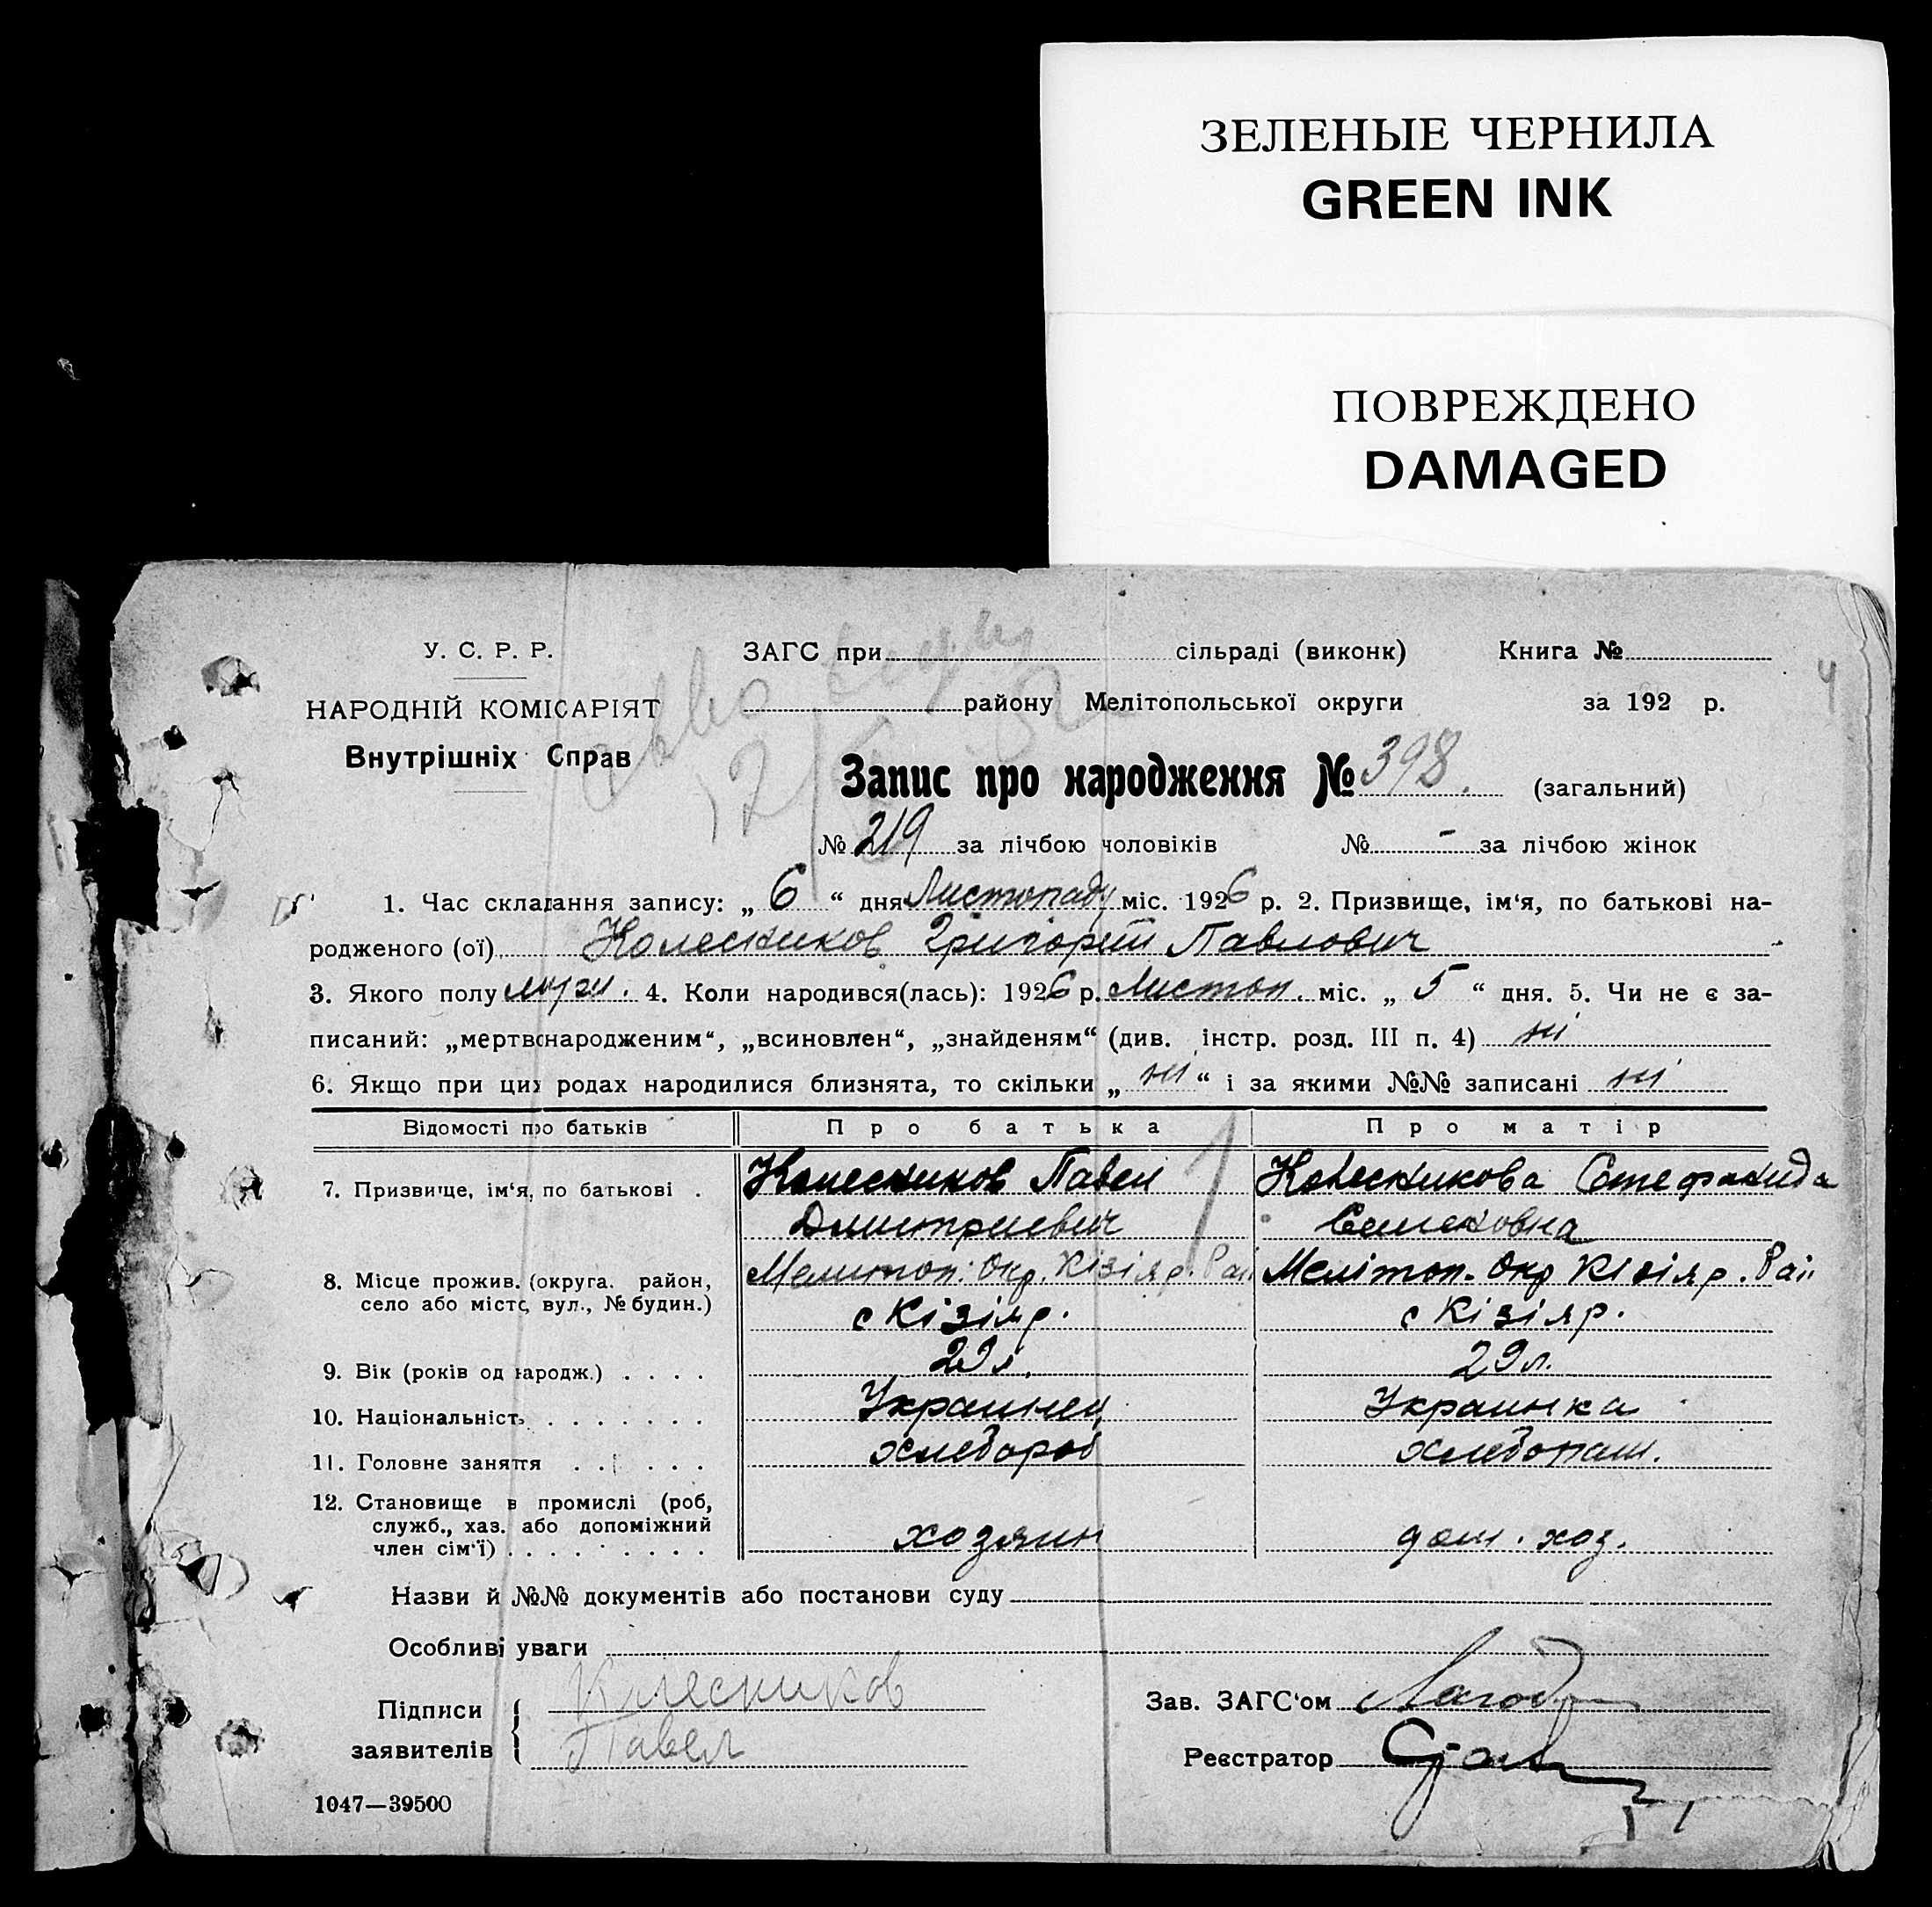 ЗЕЛЕНЫЕ ЧЕРНИЛА
GREEN INK
ПОВРЕЖДЕНО
DAMAGED
У. С. Р. Р.
НАРОДНІЙ КОМІСАРІЯТ
Внутрішніх Справ
ЗАГС при сільраді (виконк) Книга №
району Мелітопольської округи за 192 р.
4
Запис про народження № 398. (загальний)
№ 219 за лічбою чоловіків № - за лічбою жінок
1. Час складання запису: „ 6 “ дня Листопаду міс. 1926 р. 2. Призвище, ім‘я, по батькові на-
родженого (ої) Колесников Григорий Павлович
3. Якого полу муж. 4. Коли народився(лась): 1926 р. Листоп. міс. „ 5 “ дня. 5. Чи не є за-
писаний: „мертвонародженим“, „всиновлен“, „знайденям“ (див. інстр. розд. III п. 4) ні
6. Якщо при цих родах народилися близнята, то скільки „ ні “ і за якими №№ записані ні
Відомості про батьків Про батька Про матір
7. Призвище, ім‘я, по батькові . Колесников Павел Колесникова Стефанида
Дмитриевич Семеновна
8. Місце прожив. (округа, район, Мелитоп. Окр. Кізіяр. Рай Мелітоп. Окр Кізіяр. Рай
село або місто, вул., № будин.) с Кізіяр. с Кізіяр.
9. Вік (років од народж.) . . . . 29л. 29л.
10. Національність . . . . . . . Украинец Украинка
11. Головне заняття . . . . . . хлебороб хлебопаш.
12. Становище в промислі (роб,
служб., хаз. або допоміжний
член сім‘ї) . . . . . . . . . хозяин дом. хоз.
Назви й №№ документів або постанови суду
Особливі уваги
Підписи Колесников Зав. ЗАГС‘ом
заявителів Павел Реєстратор
1047—39500